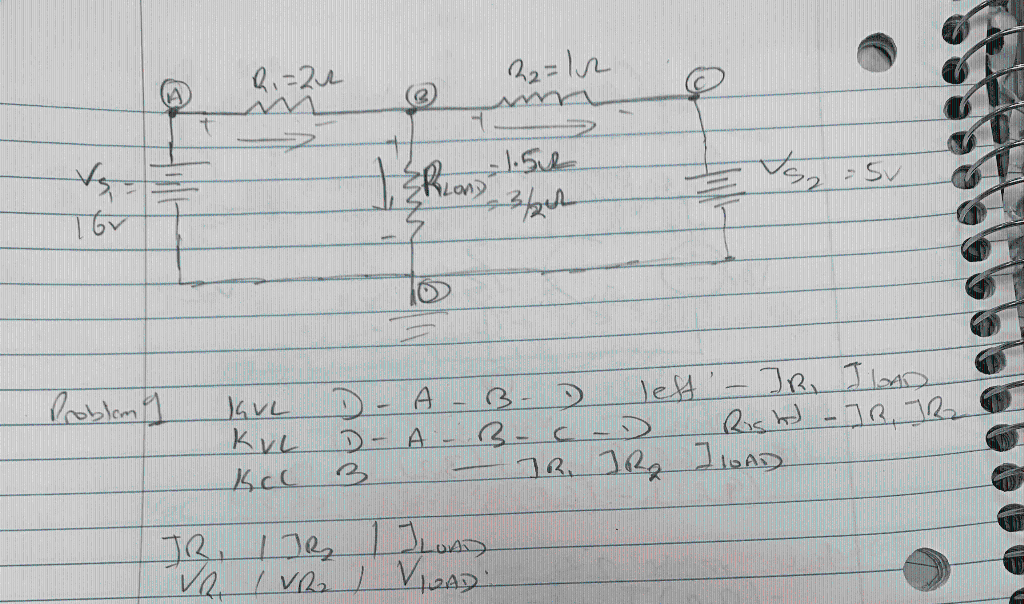 R₁=2Ω R₂=1Ω
A B C
+ - + -
Vs₁ = + RLOAD = 1.5Ω Vs₂ = 5v
16v - = 3/2Ω
D
Problem 1 KVL D - A - B - D left - IR₁ ILOAD
KVL D - A - B - C - D Right - IR₁ IR₂
KCL B — IR₁ IR₂ ILOAD
IR₁ / IR₂ / ILOAD
VR₁ / VR₂ / VLOAD.